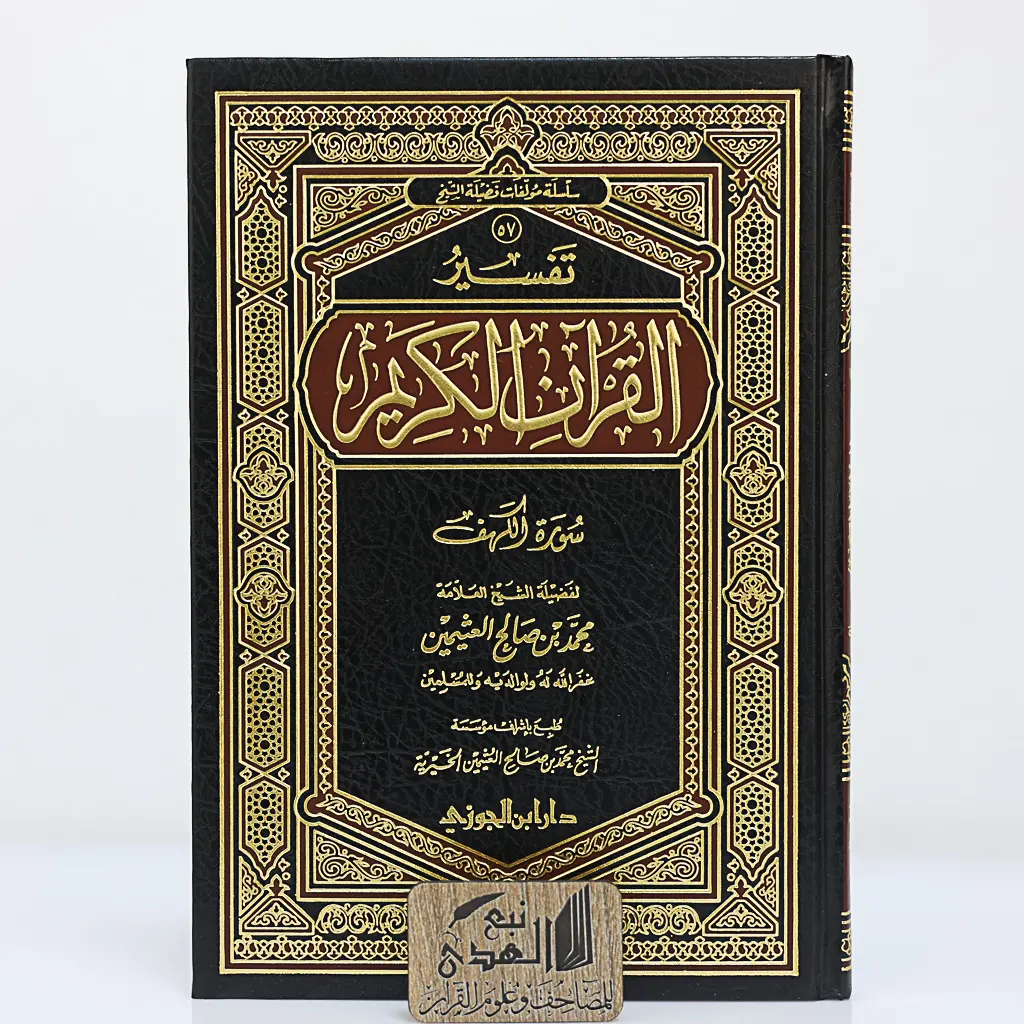 سلسلة مؤلفات فضيلة الشيخ
٥٧
تفسير
القرآن الكريم
سورة الكهف
لفضيلة الشيخ العلامة
محمد بن صالح العثيمين
غفر الله له ولوالديه وللمسلمين
طبع بإشراف مؤسسة
الشيخ محمد بن صالح العثيمين الخيرية
دار ابن الجوزي
نبع
الهدى
للمصاحف وعلوم القرآن